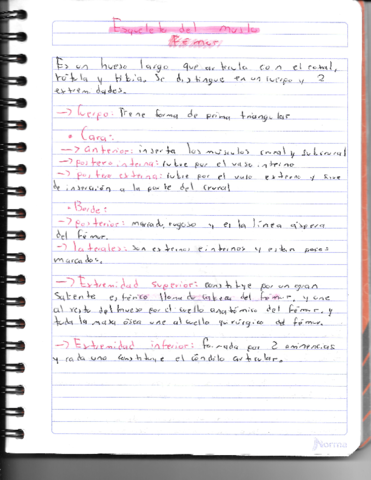 Esqueleto del muslo
Fémur
Es un hueso largo que articula con el coxal,
rótula y tibia. Se distingue en un cuerpo y 2
extremidades.
→ Cuerpo: Tiene forma de prisma triangular
• Cara:
→ anterior: inserta los músculos crural y subcrural
→ postero interna: cubre por el vaso interno
→ postero externa: cubre por el vaso externo y sirve
de inserción a la parte del crural
• Borde:
→ posterior: marcado, rugoso y es la línea áspera
del fémur.
→ laterales: son externos e internos y están poco
marcados.
→ Extremidad superior: constituye por un gran
saliente esférico llamado cabeza del fémur, y une
al resto del hueso por el cuello anatómico del fémur, y
toda la masa ósea une al cuello quirúrgico del fémur.
→ Extremidad inferior: formada por 2 eminencias
y cada una constituye el cóndilo articular.
Norma